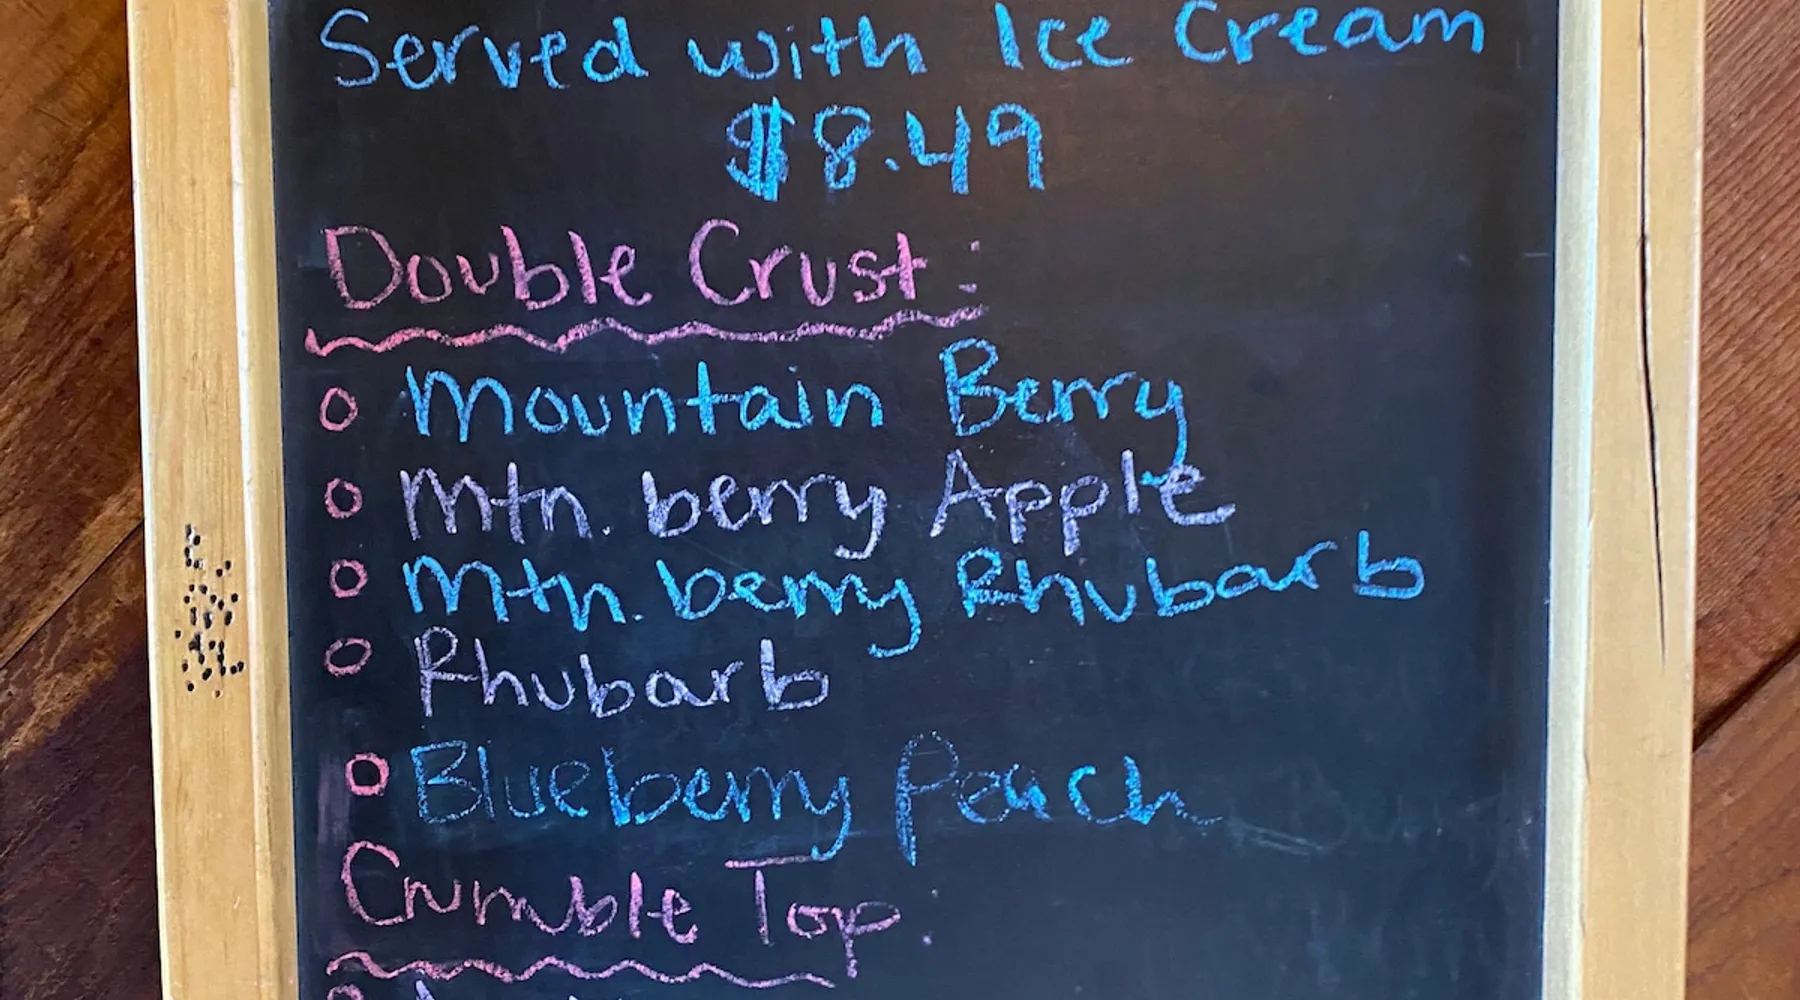 Served with Ice Cream
$8.49
Double Crust:
Mountain Berry
Mtn. berry Apple
Mtn. berry Rhubarb
Rhubarb
Blueberry Peach
Crumble Top: